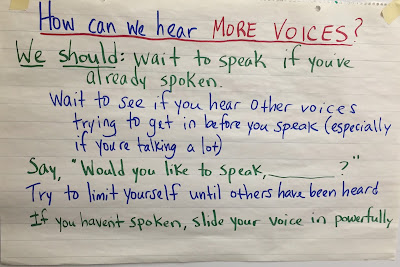 How can we hear MORE VOICES?
We should: wait to speak if you've
already spoken.
Wait to see if you hear other voices
trying to get in before you speak (especially
if you're talking a lot)
Say, "Would you like to speak, ______?"
Try to limit yourself until others have been heard
If you havent spoken, slide your voice in powerfully